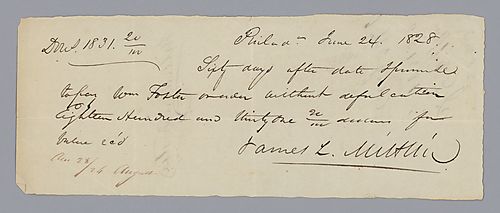 Dolls. 1831. 20/100 Philad.a June 24. 1828.
Sixty days after date I promise
to pay Wm Foster or order without defalcation
Eighteen Hundred and thirty one 20/100 dollars for
value recd
James L. Mifflin
Aug 23/26 August